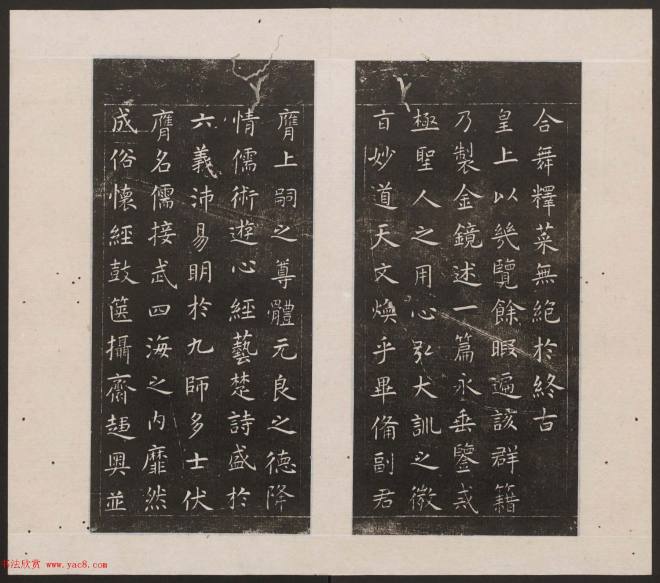 合舞釋菜無絕於終古
皇上以幾覽餘暇遍該群籍
乃製金鏡述一篇永垂鑒戒
極聖人之用心弘大訓之微
旨妙道天文煥乎畢備副君
膺上嗣之尊體元良之德降
情儒術遊心經藝楚詩盛於
六義沛易明於九師多士伏
膺名儒接武四海之內靡然
成俗懷經鼓篋攝齋趍奧並
书法欣赏 www.yac8.com